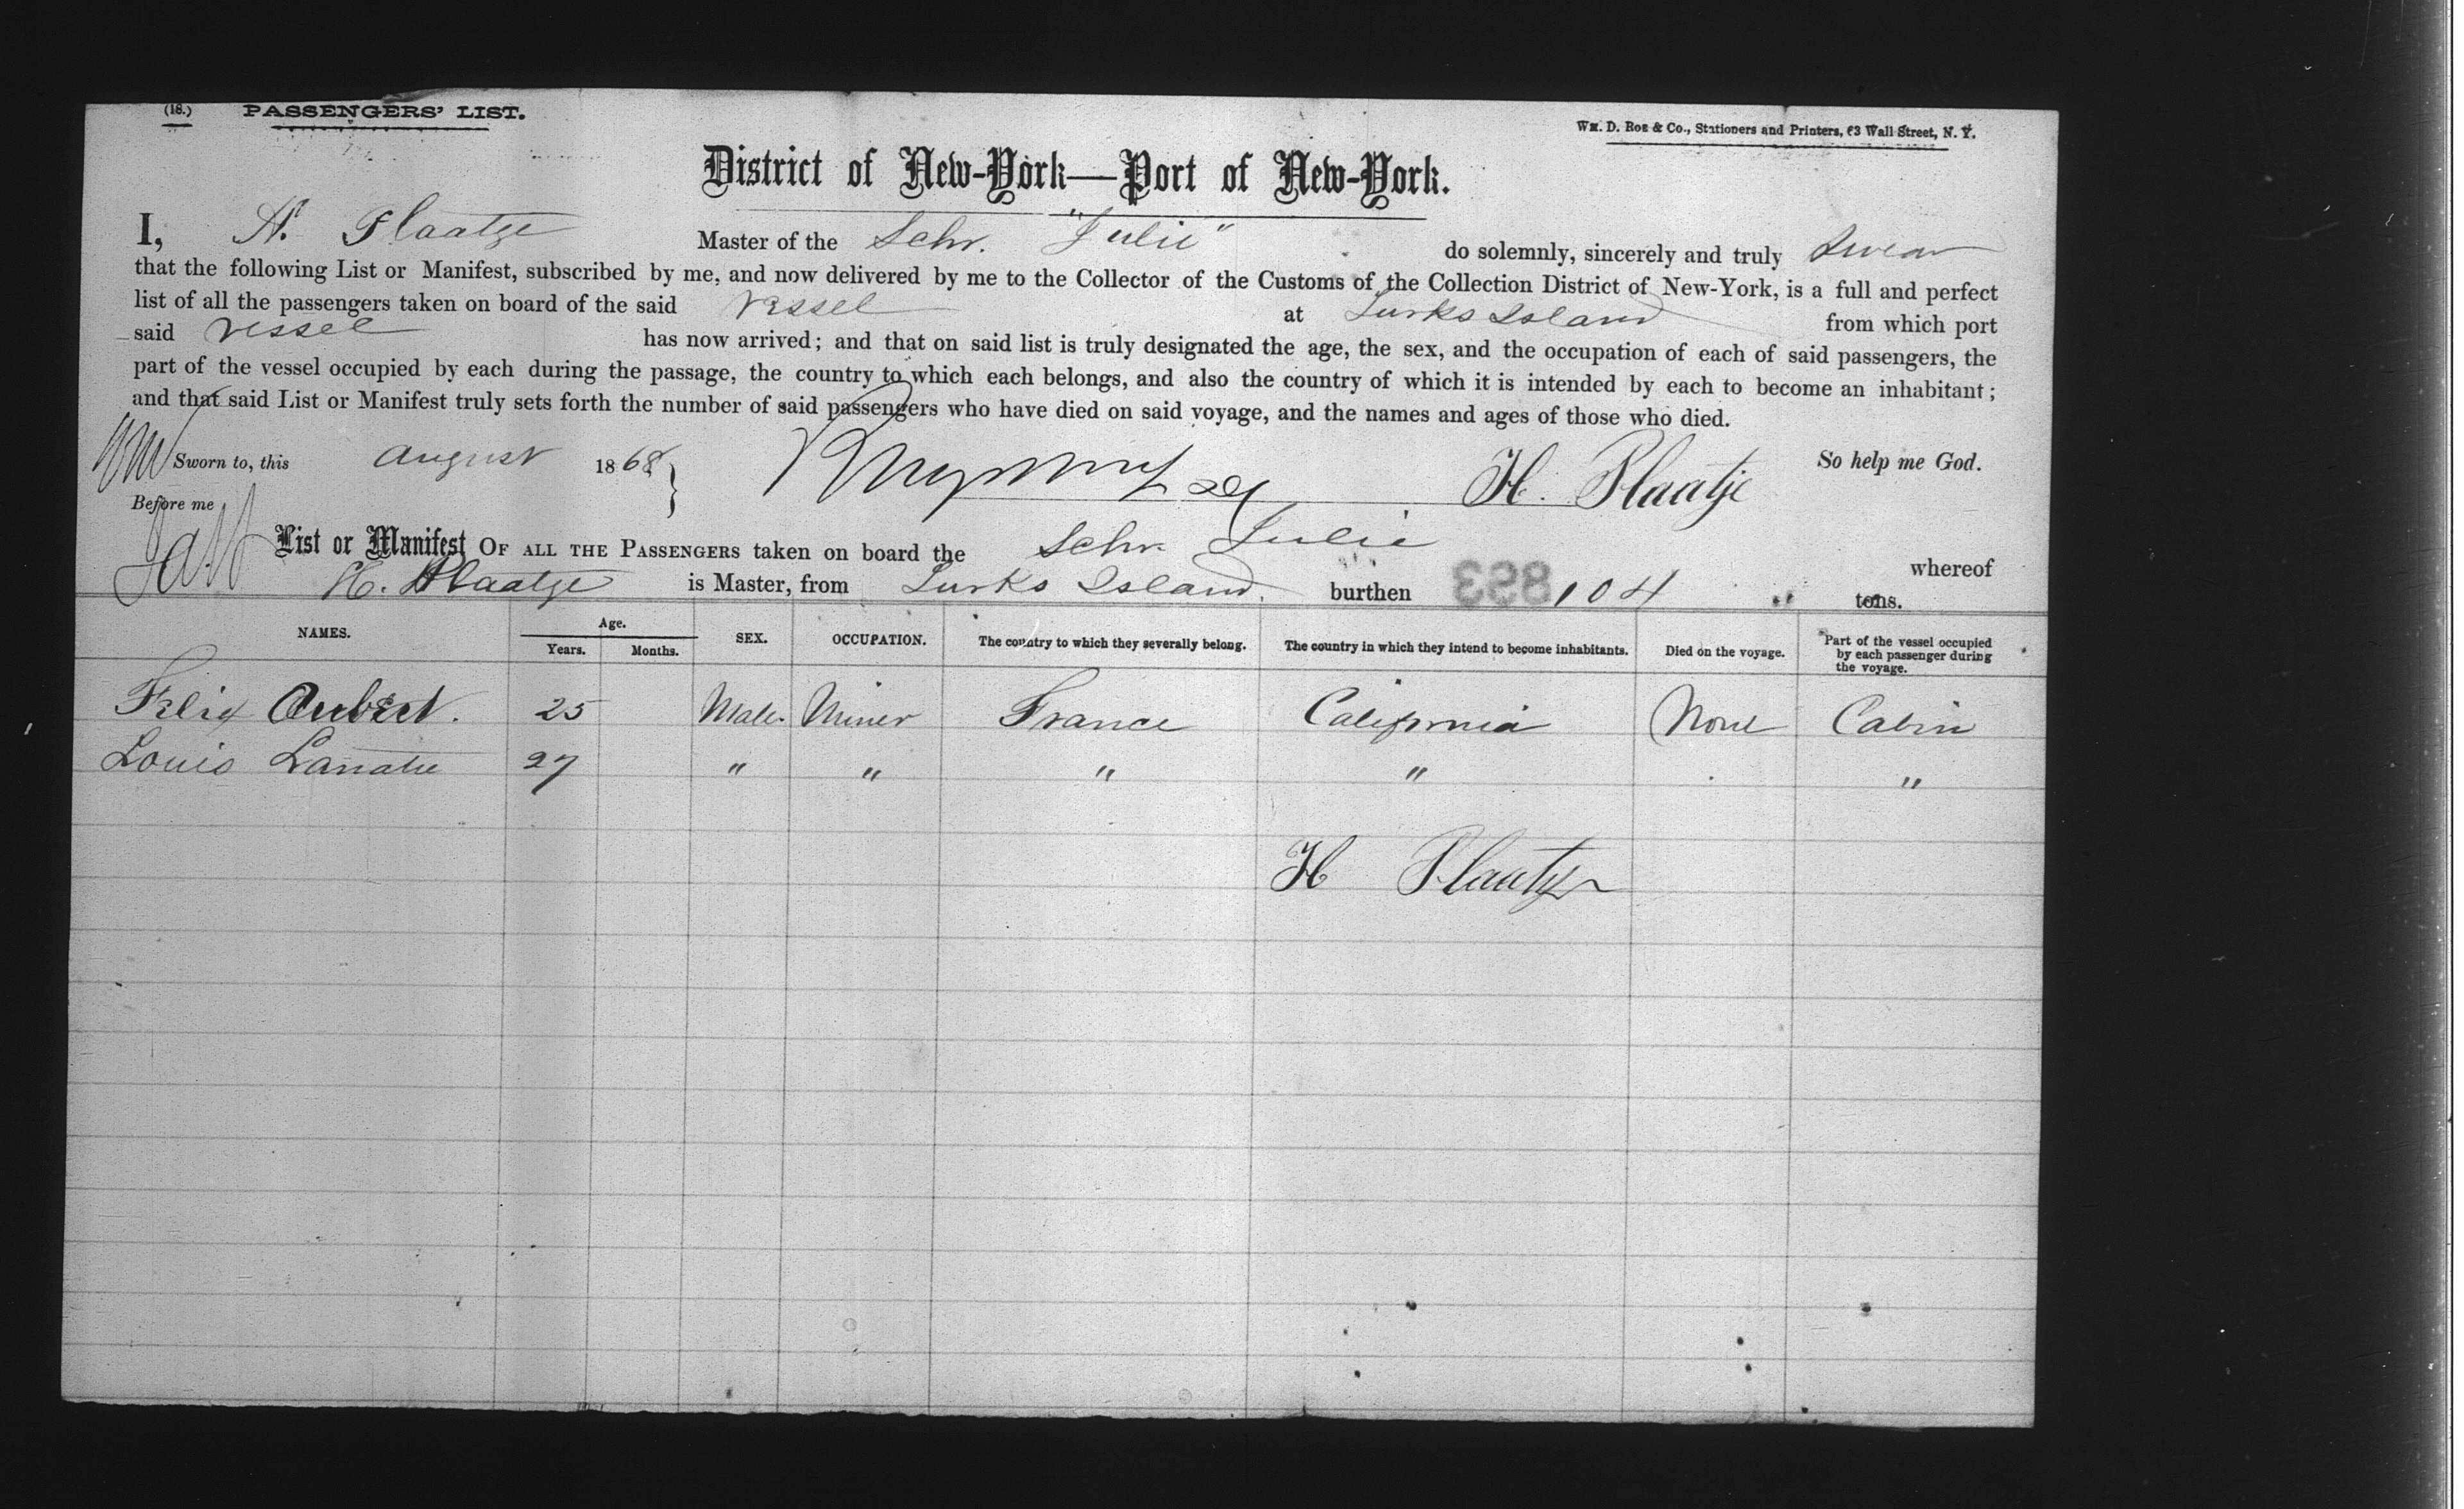 (18.) PASSENGERS' LIST.
Wm. D. Roe & Co., Stationers and Printers, 63 Wall Street, N. Y.
District of New-York—Port of New-York.
I, H. Plaatze Master of the Schr. "Julie" do solemnly, sincerely and truly Swear
that the following List or Manifest, subscribed by me, and now delivered by me to the Collector of the Customs of the Collection District of New-York, is a full and perfect
list of all the passengers taken on board of the said Vessel at Turks Island from which port
said Vessel has now arrived; and that on said list is truly designated the age, the sex, and the occupation of each of said passengers, the
part of the vessel occupied by each during the passage, the country to which each belongs, and also the country of which it is intended by each to become an inhabitant;
and that said List or Manifest truly sets forth the number of said passengers who have died on said voyage, and the names and ages of those who died.
Sworn to, this August 1868 } H. Plaatje So help me God.
Before me
List or Manifest OF ALL THE PASSENGERS taken on board the Schr. Julie whereof
H. Plaatze is Master, from Turks Island. burthen 104 tons.
NAMES. Age. Years. Months. SEX. OCCUPATION. The country to which they severally belong. The country in which they intend to become inhabitants. Died on the voyage. Part of the vessel occupied by each passenger during the voyage.
Felix Aubert. 25 Male. Miner France California None Cabin
Louis 27 " " " " "
H Plaatje